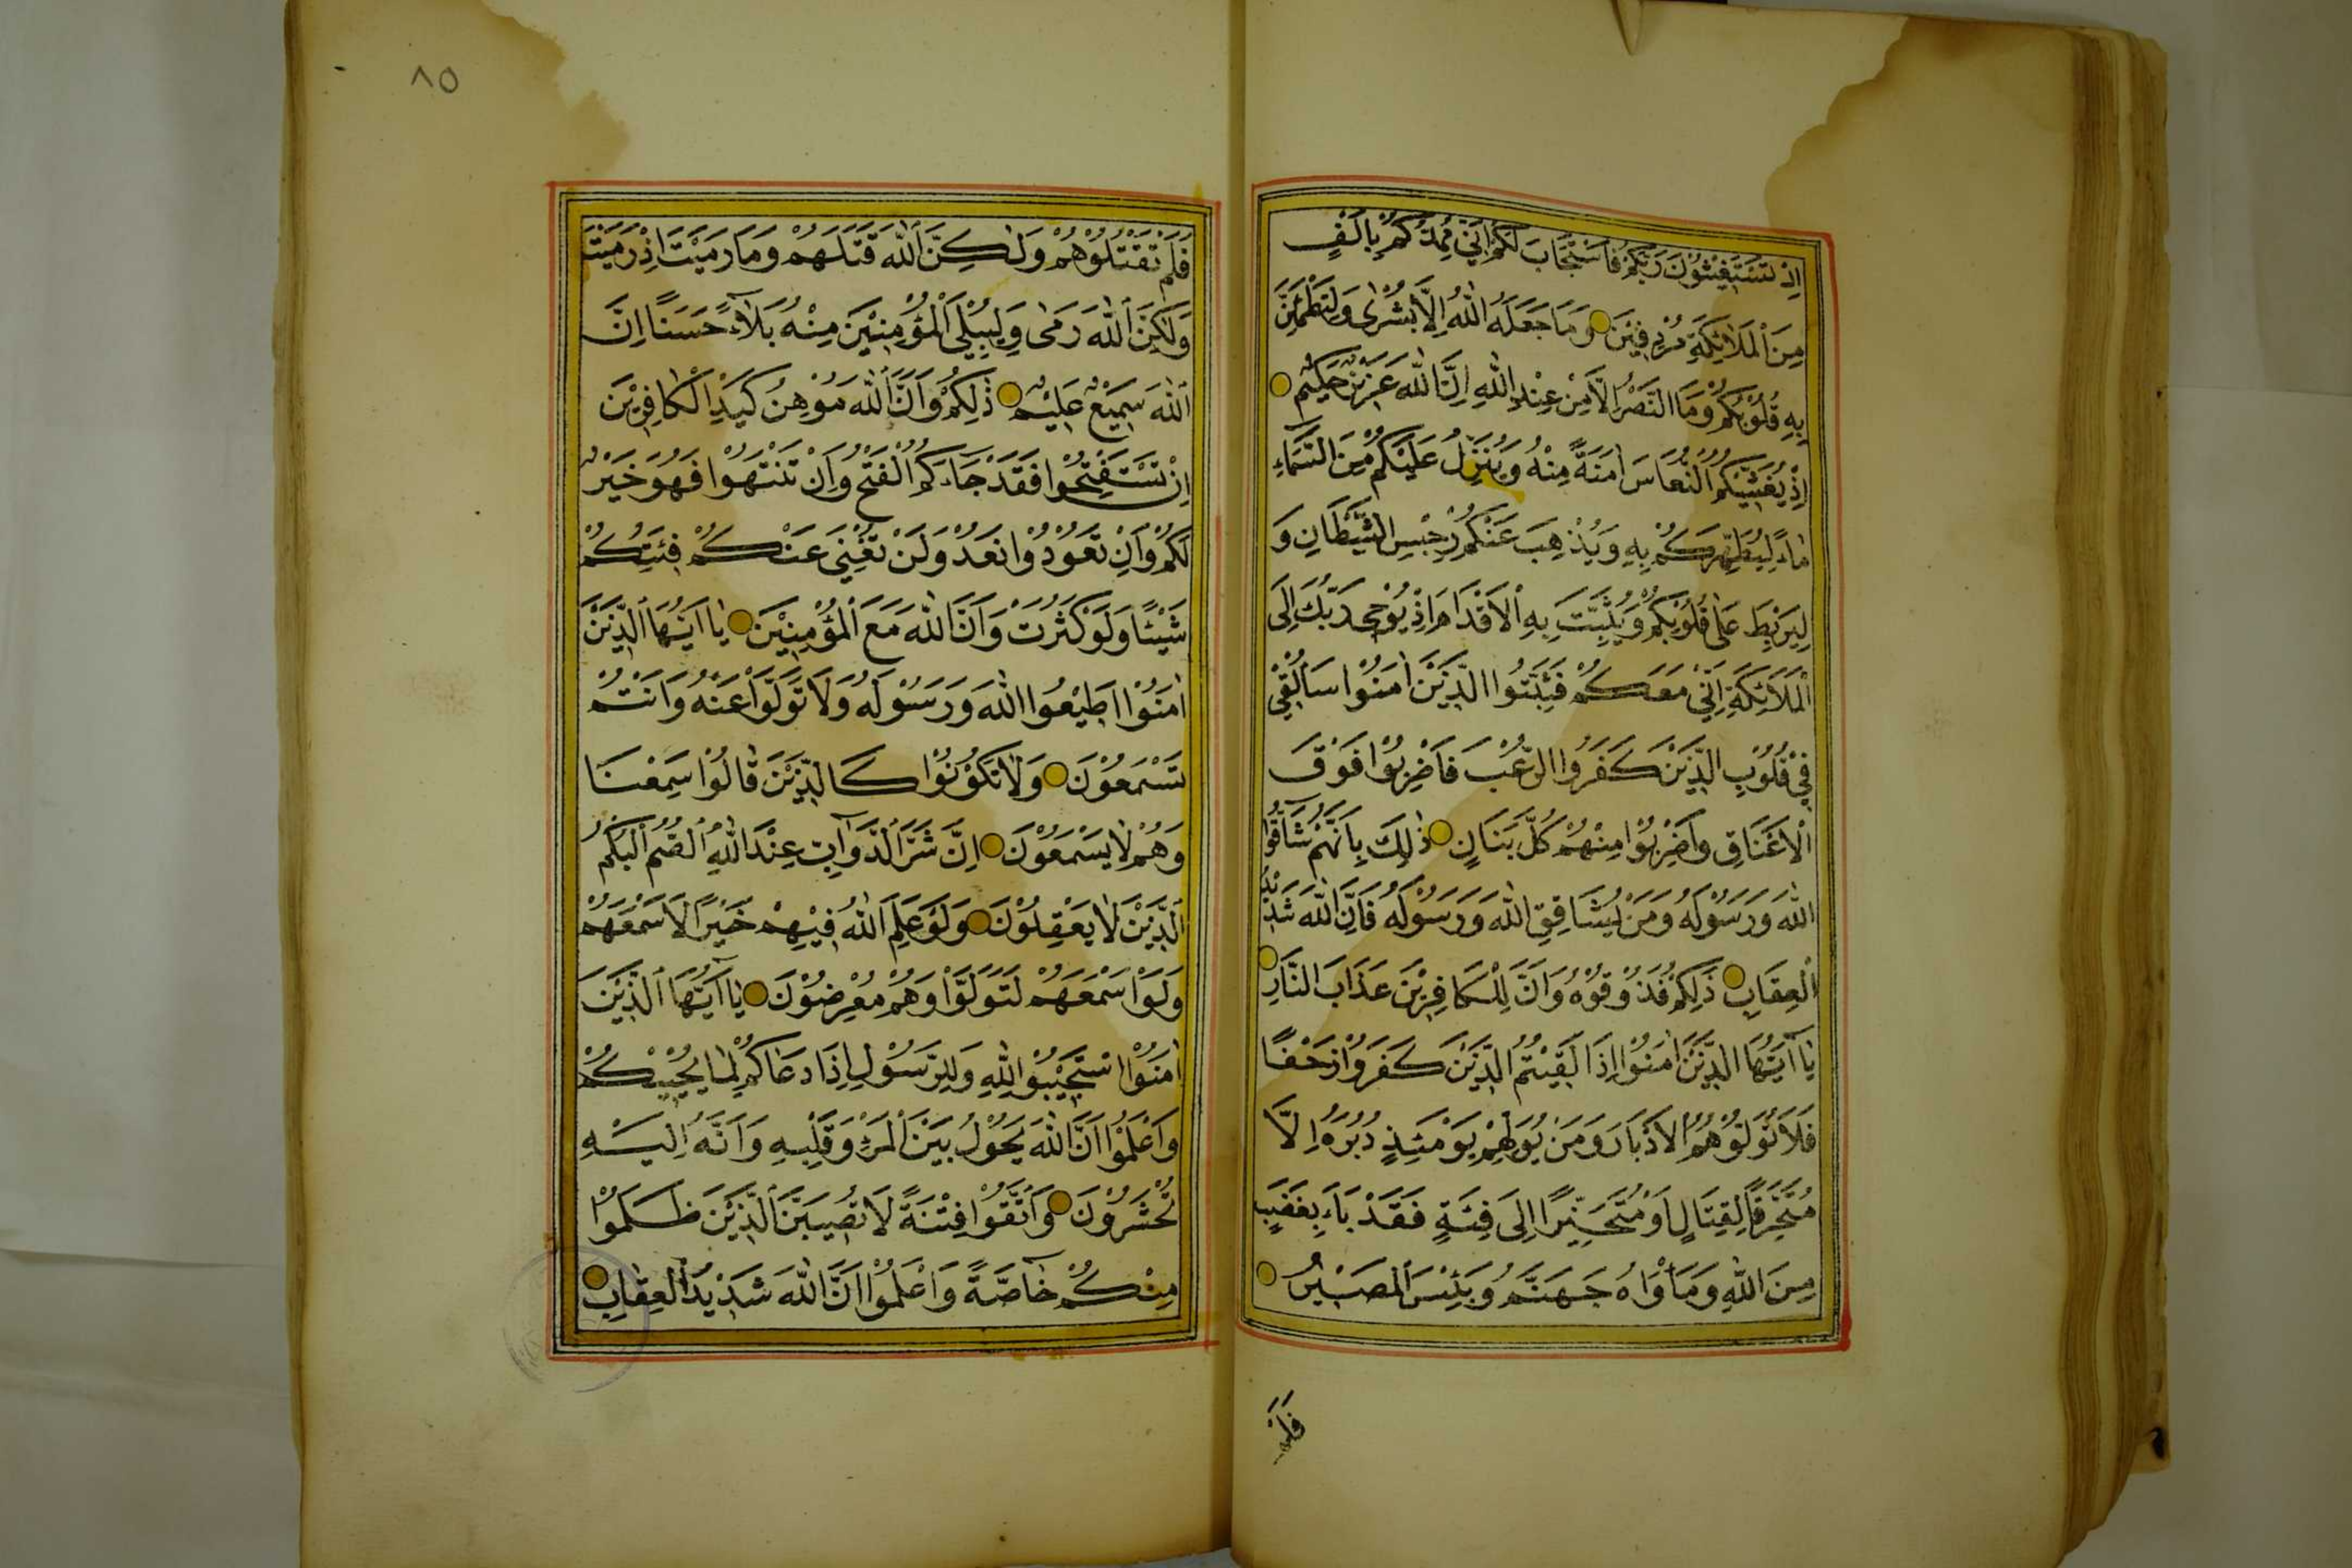 اِذْ تَسْتَغِيْثُوْنَ رَبَّكُمْ فَاسْتَجَابَ لَكُمْ اَنِّيْ مُمِدُّكُمْ بِاَلْفٍ
مِنَ الْمَلَائِكَةِ مُرْدِفِيْنَ وَمَا جَعَلَهُ اللّٰهُ اِلَّا بُشْرٰى وَلِتَطْمَئِنَّ
بِهِ قُلُوْبُكُمْ وَمَا النَّصْرُ اِلَّا مِنْ عِنْدِ اللّٰهِ اِنَّ اللّٰهَ عَزِيْزٌ حَكِيْمٌ
اِذْ يُغَشِّيْكُمُ النُّعَاسَ اَمَنَةً مِنْهُ وَيُنَزِّلُ عَلَيْكُمْ مِنَ السَّمَاءِ
مَاءً لِيُطَهِّرَكُمْ بِهِ وَيُذْهِبَ عَنْكُمْ رِجْسَ الشَّيْطَانِ وَ
لِيَرْبِطَ عَلٰى قُلُوْبِكُمْ وَيُثَبِّتَ بِهِ الْاَقْدَامَ اِذْ يُوْحِى رَبُّكَ اِلَى
الْمَلَائِكَةِ اَنِّيْ مَعَكُمْ فَثَبِّتُوا الَّذِيْنَ اٰمَنُوْا سَاُلْقِيْ
فِيْ قُلُوْبِ الَّذِيْنَ كَفَرُوا الرُّعْبَ فَاضْرِبُوْا فَوْقَ
الْاَعْنَاقِ وَاضْرِبُوْا مِنْهُمْ كُلَّ بَنَانٍ ذٰلِكَ بِاَنَّهُمْ شَاقُّوا
اللّٰهَ وَرَسُوْلَهُ وَمَنْ يُشَاقِقِ اللّٰهَ وَرَسُوْلَهُ فَاِنَّ اللّٰهَ شَدِيْدُ
الْعِقَابِ ذٰلِكُمْ فَذُوْقُوْهُ وَاَنَّ لِلْكَافِرِيْنَ عَذَابَ النَّارِ
يَا اَيُّهَا الَّذِيْنَ اٰمَنُوْا اِذَا لَقِيْتُمُ الَّذِيْنَ كَفَرُوْا زَحْفًا
فَلَا تُوَلُّوْهُمُ الْاَدْبَارَ وَمَنْ يُوَلِّهِمْ يَوْمَئِذٍ دُبُرَهُ اِلَّا
مُتَحَرِّفًا لِقِتَالٍ اَوْ مُتَحَيِّزًا اِلَى فِئَةٍ فَقَدْ بَاءَ بِغَضَبٍ
مِنَ اللّٰهِ وَمَأْوَاهُ جَهَنَّمُ وَبِئْسَ الْمَصِيْرُ
فَلَمْ
٨٥
فَلَمْ تَقْتُلُوْهُمْ وَلٰكِنَّ اللّٰهَ قَتَلَهُمْ وَمَا رَمَيْتَ اِذْ رَمَيْتَ
وَلٰكِنَّ اللّٰهَ رَمٰى وَلِيُبْلِيَ الْمُؤْمِنِيْنَ مِنْهُ بَلَاءً حَسَنًا اِنَّ
اللّٰهَ سَمِيْعٌ عَلِيْمٌ ذٰلِكُمْ وَاَنَّ اللّٰهَ مُوْهِنُ كَيْدِ الْكَافِرِيْنَ
اِنْ تَسْتَفْتِحُوا فَقَدْ جَاءَكُمُ الْفَتْحُ وَاِنْ تَنْتَهُوْا فَهُوَ خَيْرٌ
لَكُمْ وَاِنْ تَعُوْدُوْا نَعُدْ وَلَنْ تُغْنِيَ عَنْكُمْ فِئَتُكُمْ
شَيْئًا وَلَوْ كَثُرَتْ وَاَنَّ اللّٰهَ مَعَ الْمُؤْمِنِيْنَ يَا اَيُّهَا الَّذِيْنَ
اٰمَنُوْا اَطِيْعُوا اللّٰهَ وَرَسُوْلَهُ وَلَا تَوَلَّوْا عَنْهُ وَاَنْتُمْ
تَسْمَعُوْنَ وَلَا تَكُوْنُوْا كَالَّذِيْنَ قَالُوْا سَمِعْنَا
وَهُمْ لَا يَسْمَعُوْنَ اِنَّ شَرَّ الدَّوَآبِّ عِنْدَ اللّٰهِ الصُّمُّ الْبُكْمُ
الَّذِيْنَ لَا يَعْقِلُوْنَ وَلَوْ عَلِمَ اللّٰهُ فِيْهِمْ خَيْرًا لَاَسْمَعَهُمْ
وَلَوْ اَسْمَعَهُمْ لَتَوَلَّوْا وَهُمْ مُعْرِضُوْنَ يَا اَيُّهَا الَّذِيْنَ
اٰمَنُوْا اسْتَجِيْبُوْا لِلّٰهِ وَلِلرَّسُوْلِ اِذَا دَعَاكُمْ لِمَا يُحْيِيْكُمْ
وَاعْلَمُوْا اَنَّ اللّٰهَ يَحُوْلُ بَيْنَ الْمَرْءِ وَقَلْبِهِ وَاَنَّهُ اِلَيْهِ
تُحْشَرُوْنَ وَاتَّقُوْا فِتْنَةً لَا تُصِيْبَنَّ الَّذِيْنَ ظَلَمُوْا
مِنْكُمْ خَاصَّةً وَاعْلَمُوْا اَنَّ اللّٰهَ شَدِيْدُ الْعِقَابِ